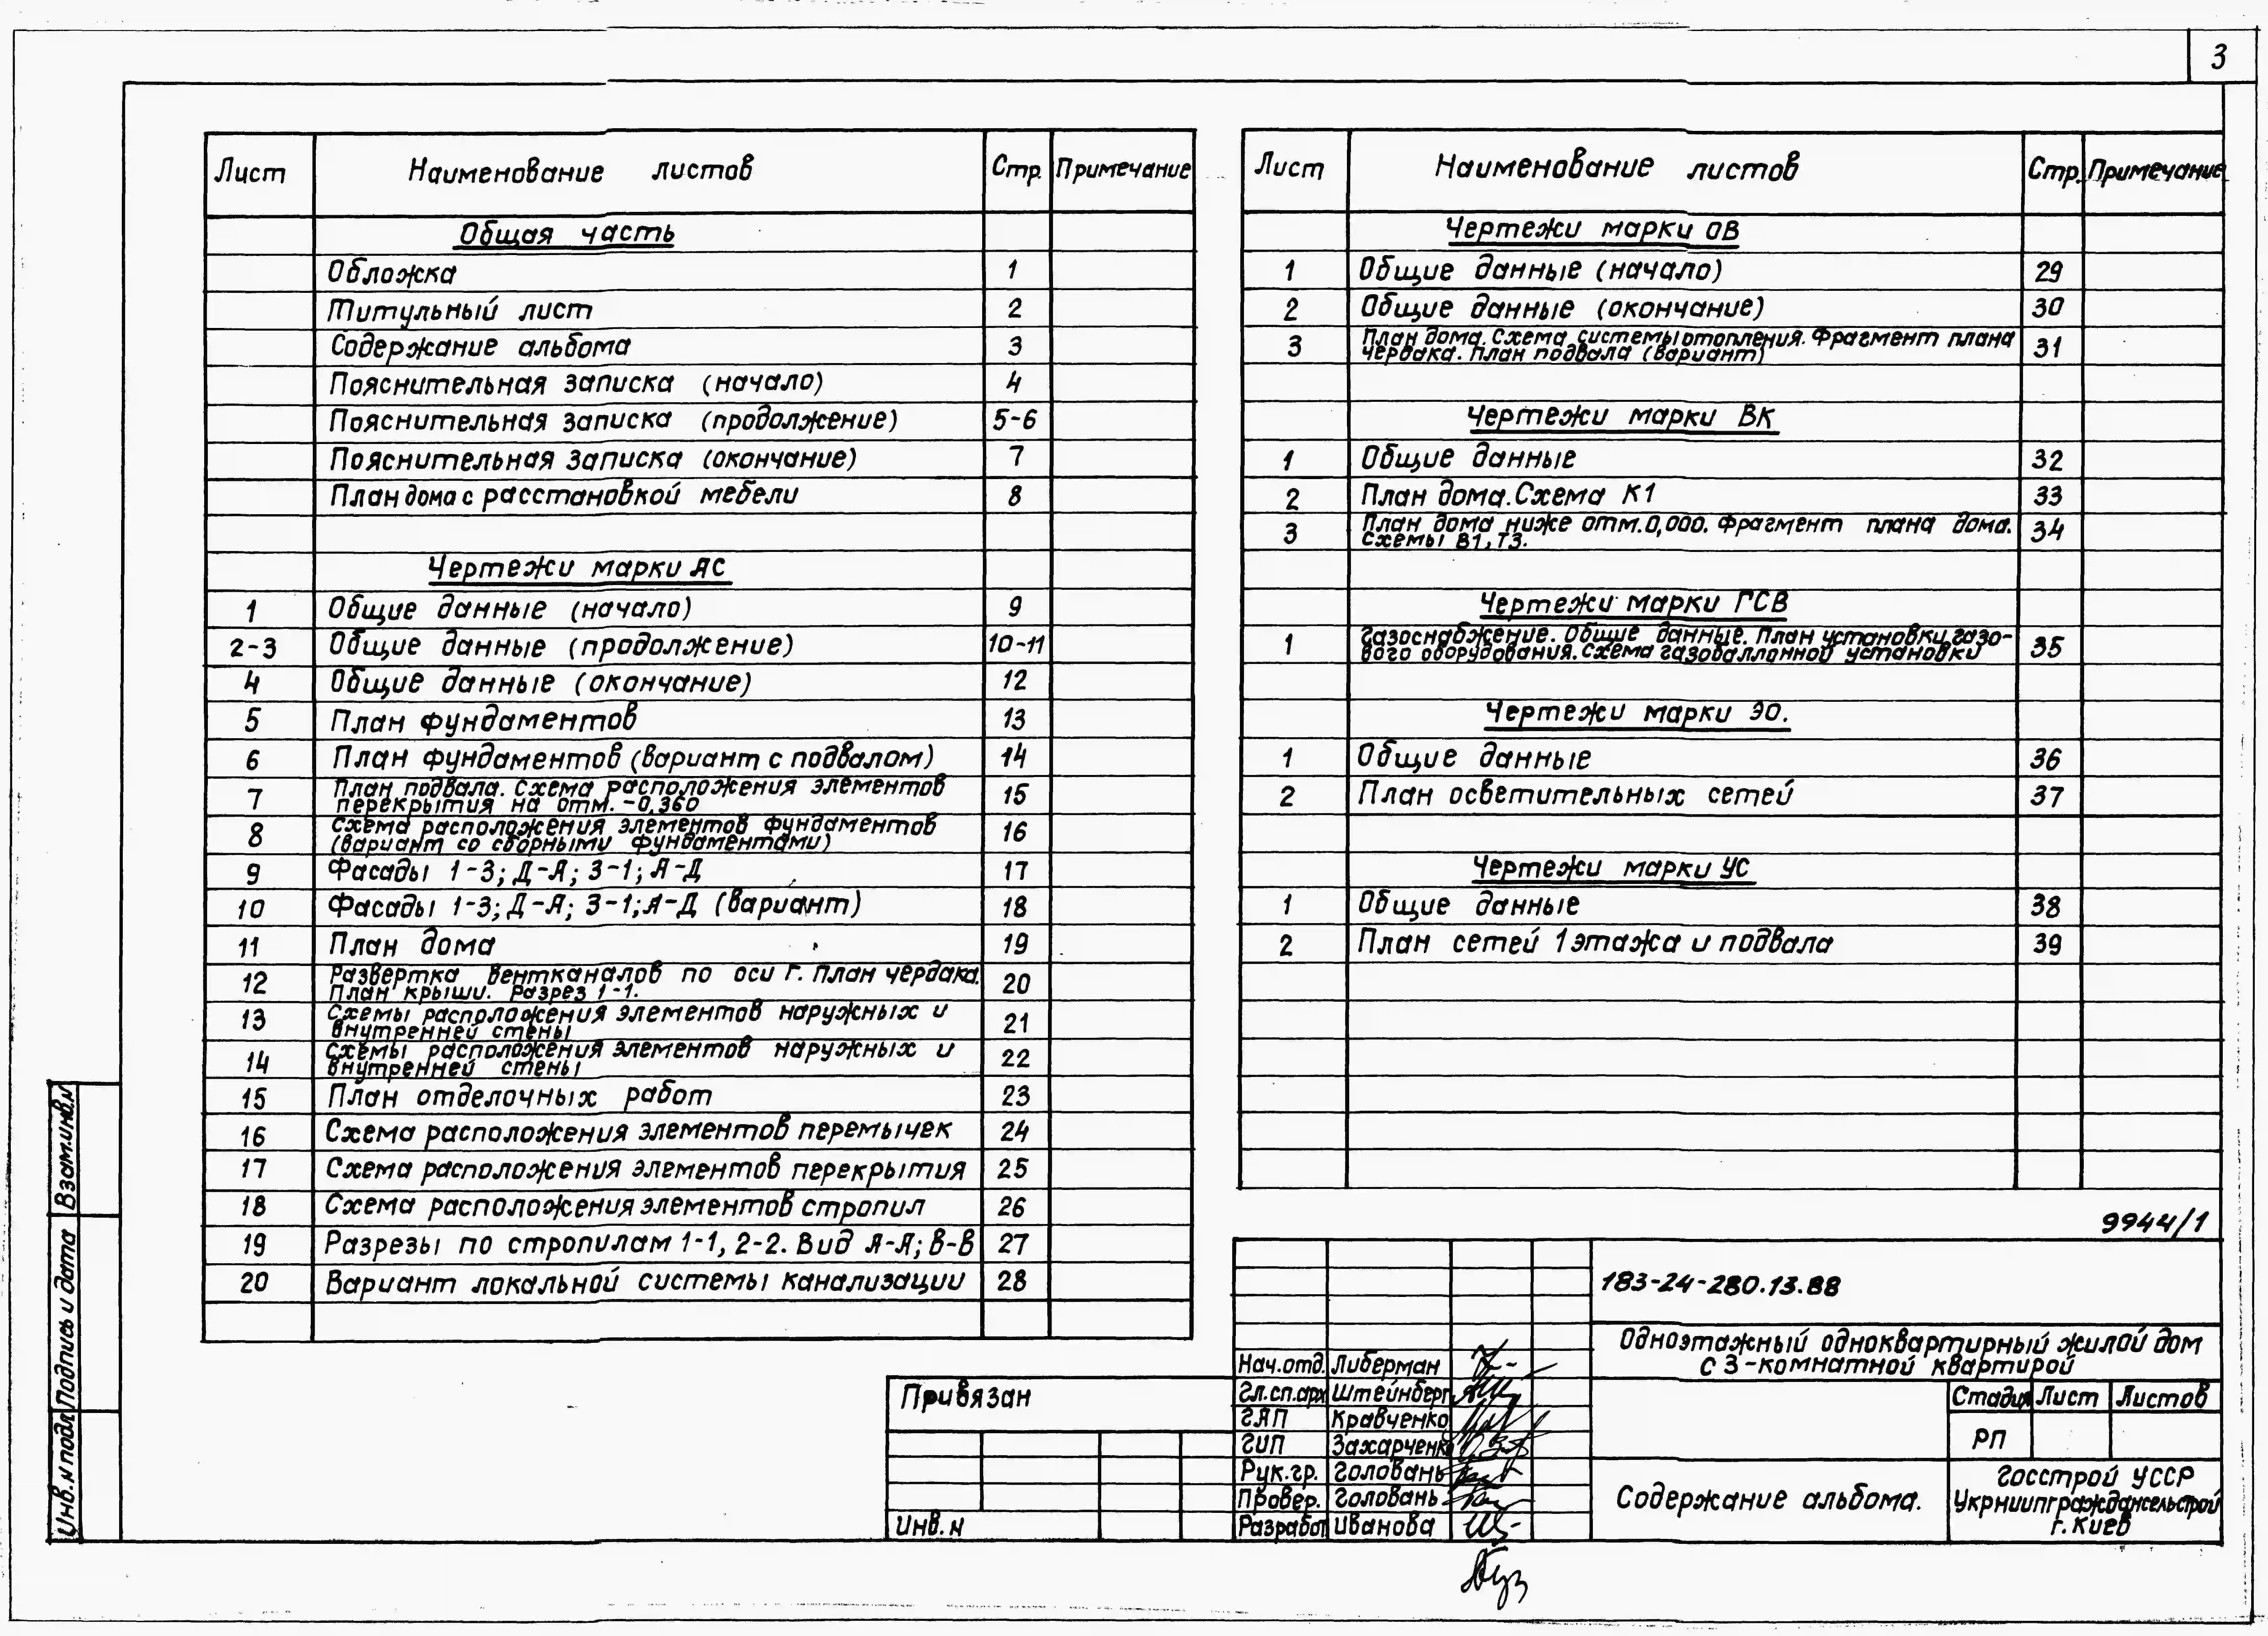 3
Лист Наименование листов Стр. Примечание
Общая часть
Обложка 1
Титульный лист 2
Содержание альбома 3
Пояснительная записка (начало) 4
Пояснительная записка (продолжение) 5-6
Пояснительная записка (окончание) 7
План дома с расстановкой мебели 8
Чертежи марки АС
1 Общие данные (начало) 9
2-3 Общие данные (продолжение) 10-11
4 Общие данные (окончание) 12
5 План фундаментов 13
6 План фундаментов (вариант с подвалом) 14
7 План подвала. Схема расположения элементов 15
перекрытия на отм. -0,360
8 Схема расположения элементов фундаментов 16
(вариант со сборными фундаментами)
9 Фасады 1-3; Д-А; 3-1; А-Д 17
10 Фасады 1-3; Д-А; 3-1; А-Д (вариант) 18
11 План дома 19
12 Развертка вентканалов по оси Г. План чердака. 20
План крыши. Разрез 1-1.
13 Схемы расположения элементов наружных и 21
внутренней стены
14 Схемы расположения элементов наружных и 22
внутренней стены
15 План отделочных работ 23
16 Схема расположения элементов перемычек 24
17 Схема расположения элементов перекрытия 25
18 Схема расположения элементов стропил 26
19 Разрезы по стропилам 1-1, 2-2. Вид А-А; В-В 27
20 Вариант локальной системы канализации 28
Лист Наименование листов Стр. Примечание
Чертежи марки ОВ
1 Общие данные (начало) 29
2 Общие данные (окончание) 30
3 План дома. Схема системы отопления. Фрагмент плана 31
чердака. План подвала (вариант)
Чертежи марки ВК
1 Общие данные 32
2 План дома. Схема К1 33
3 План дома ниже отм. 0,000. Фрагмент плана дома. 34
Схемы В1, Т3.
Чертежи марки ГСВ
1 Газоснабжение. Общие данные. План установки газо- 35
вого оборудования. Схема газобаллонной установки
Чертежи марки ЭО.
1 Общие данные 36
2 План осветительных сетей 37
Чертежи марки УС
1 Общие данные 38
2 План сетей 1 этажа и подвала 39
9944/1
183-24-280.13.88
Одноэтажный одноквартирный жилой дом
с 3-комнатной квартирой
Нач.отд. Либерман
Гл.сп.арх Штейнберг
ГАП Кравченко
ГИП Захарченко
Рук.гр. Головань
Провер. Головань
Разработ Иванова
Стадия Лист Листов
РП
Содержание альбома.
Госстрой УССР
УкрНИИПграждансельстрой
г. Киев
Привязан
Инв. N
Взам.инв.N
Подпись и дата
Инв. N подл